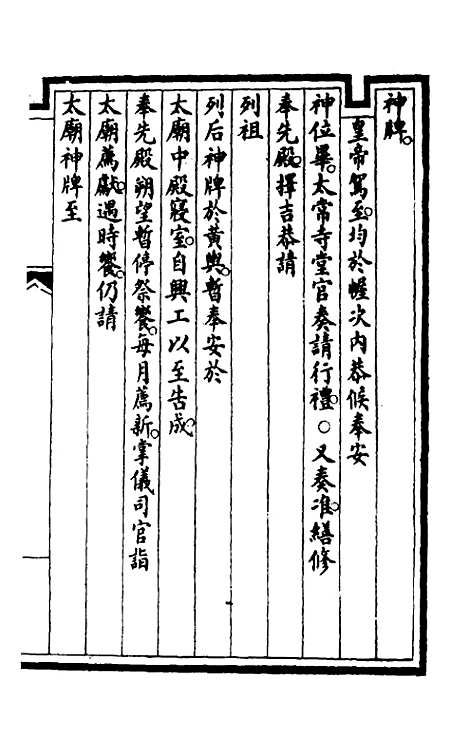 神牌。
皇帝駕至。均於幄次内恭候奉安
神位畢。太常寺堂官奏請行禮。○又奏准。繕修
奉先殿。擇吉恭請
列祖
列后神牌於黃輿。暫奉安於
太廟中殿寢室。自興工以至告成。
奉先殿朔望暫停祭饗。每月薦新。掌儀司官詣
太廟薦獻。遇時饗。仍請
太廟神牌至